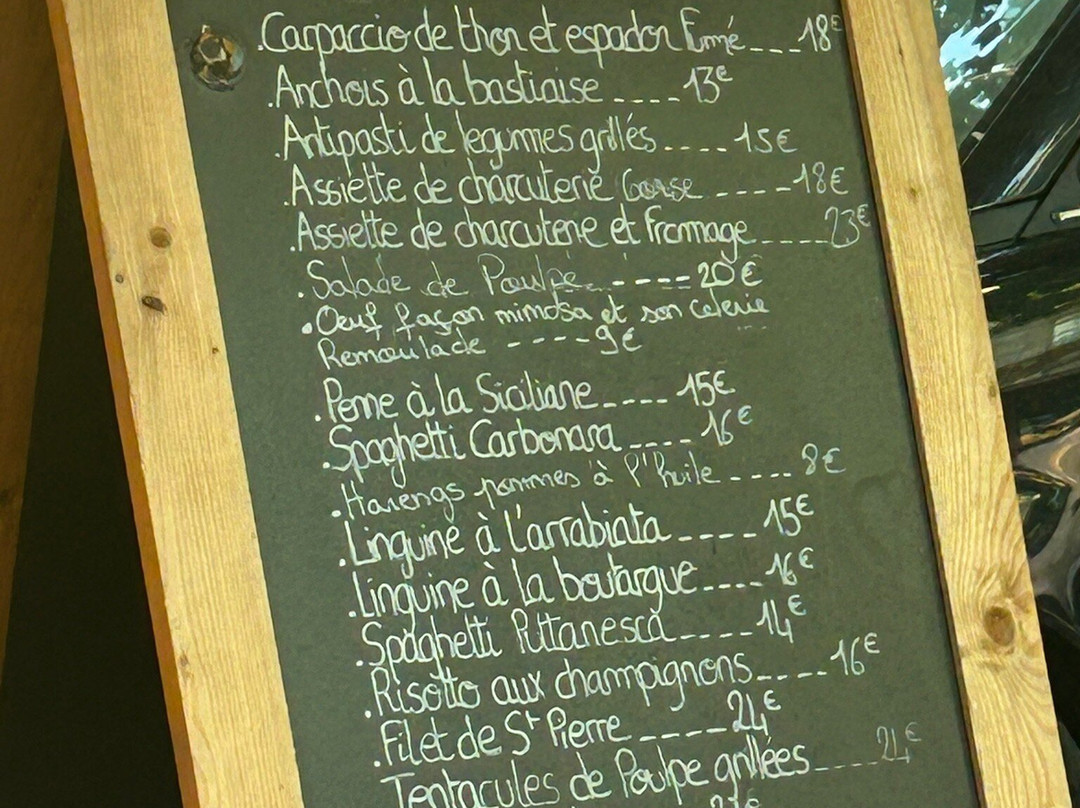 .Carpaccio de thon et espadon Fumé___18€
.Anchois à la bastiaise ____13€
.Antipasti de legumes grillés____15€
.Assiette de charcuterie Corse ____18€
.Assiette de charcuterie et fromage____23€
.Salade de Poulpe ____20€
.Oeuf façon mimosa et son celerie
Remoulade ----9€
.Penne à la Siciliane____15€
.Spaghetti Carbonara____16€
.Harengs pommes à l'huile____8€
.Linguine à l'arrabiata____15€
.Linguine à la boutargue____16€
.Spaghetti Puttanesca____14€
.Risotto aux champignons____16€
.Filet de St Pierre____24€
Tentacules de Poulpe grillées____24€